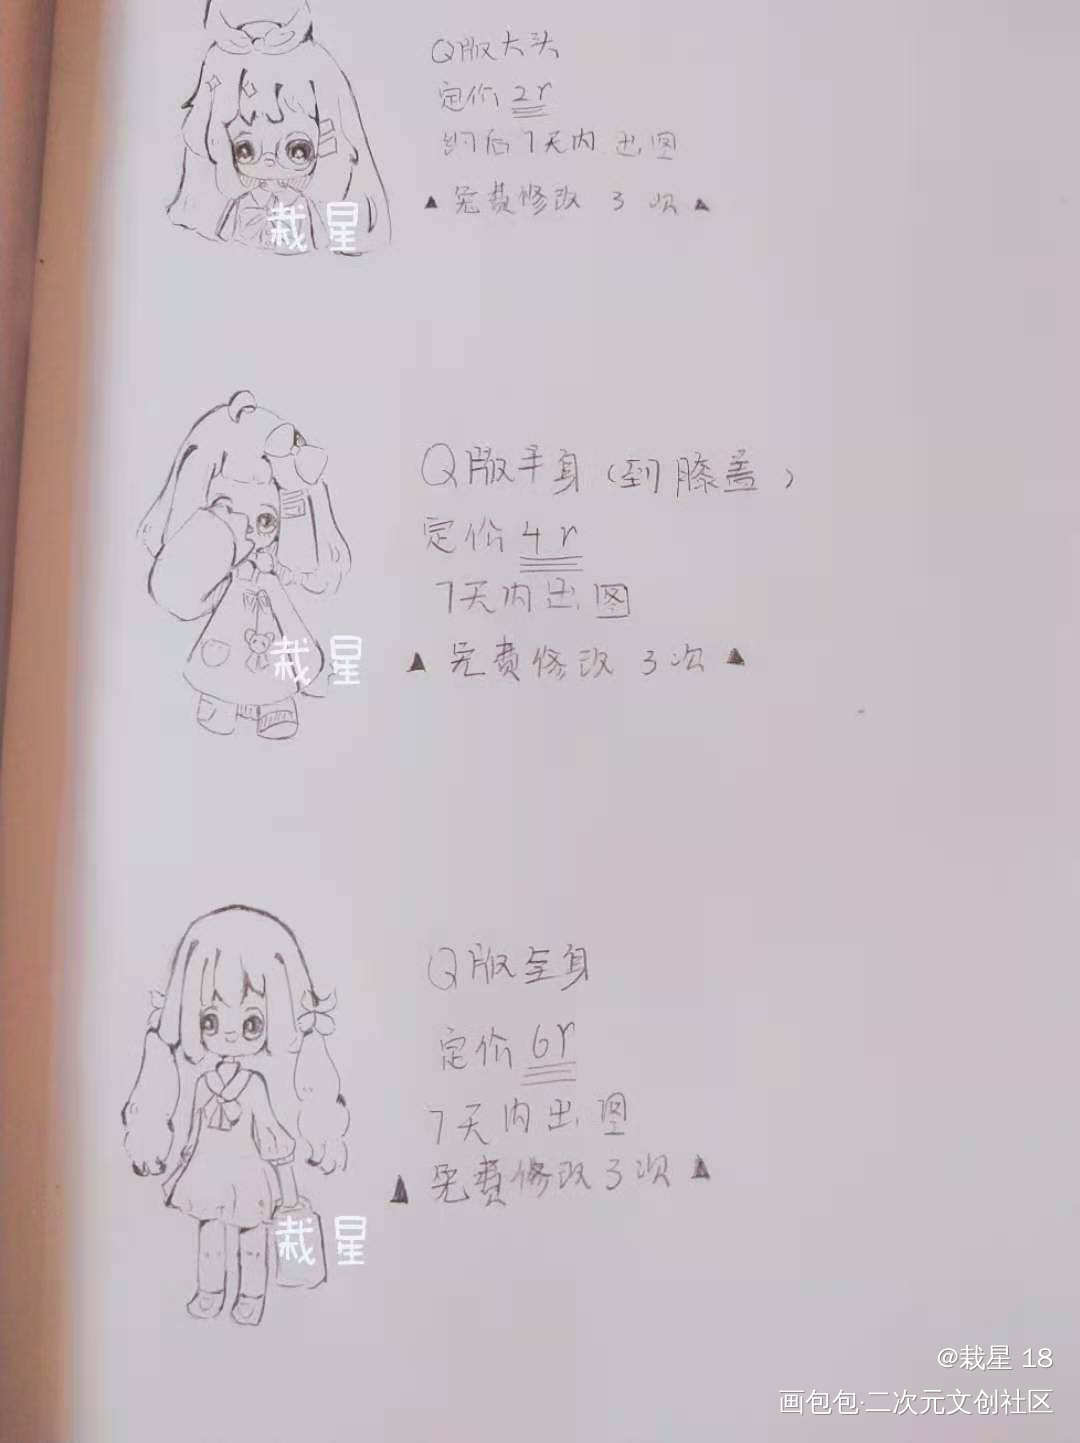 Q版大头
定价 2r
约后7天内 出图
▲ 免费修改 3 次 ▲
栽星
Q版半身(到膝盖)
定价 4r
7天内出图
▲ 免费修改 3次 ▲
栽星
Q版全身
定价 6r
7天内出图
▲ 免费修改3次 ▲
栽星
@栽星 18
画包包·二次元文创社区